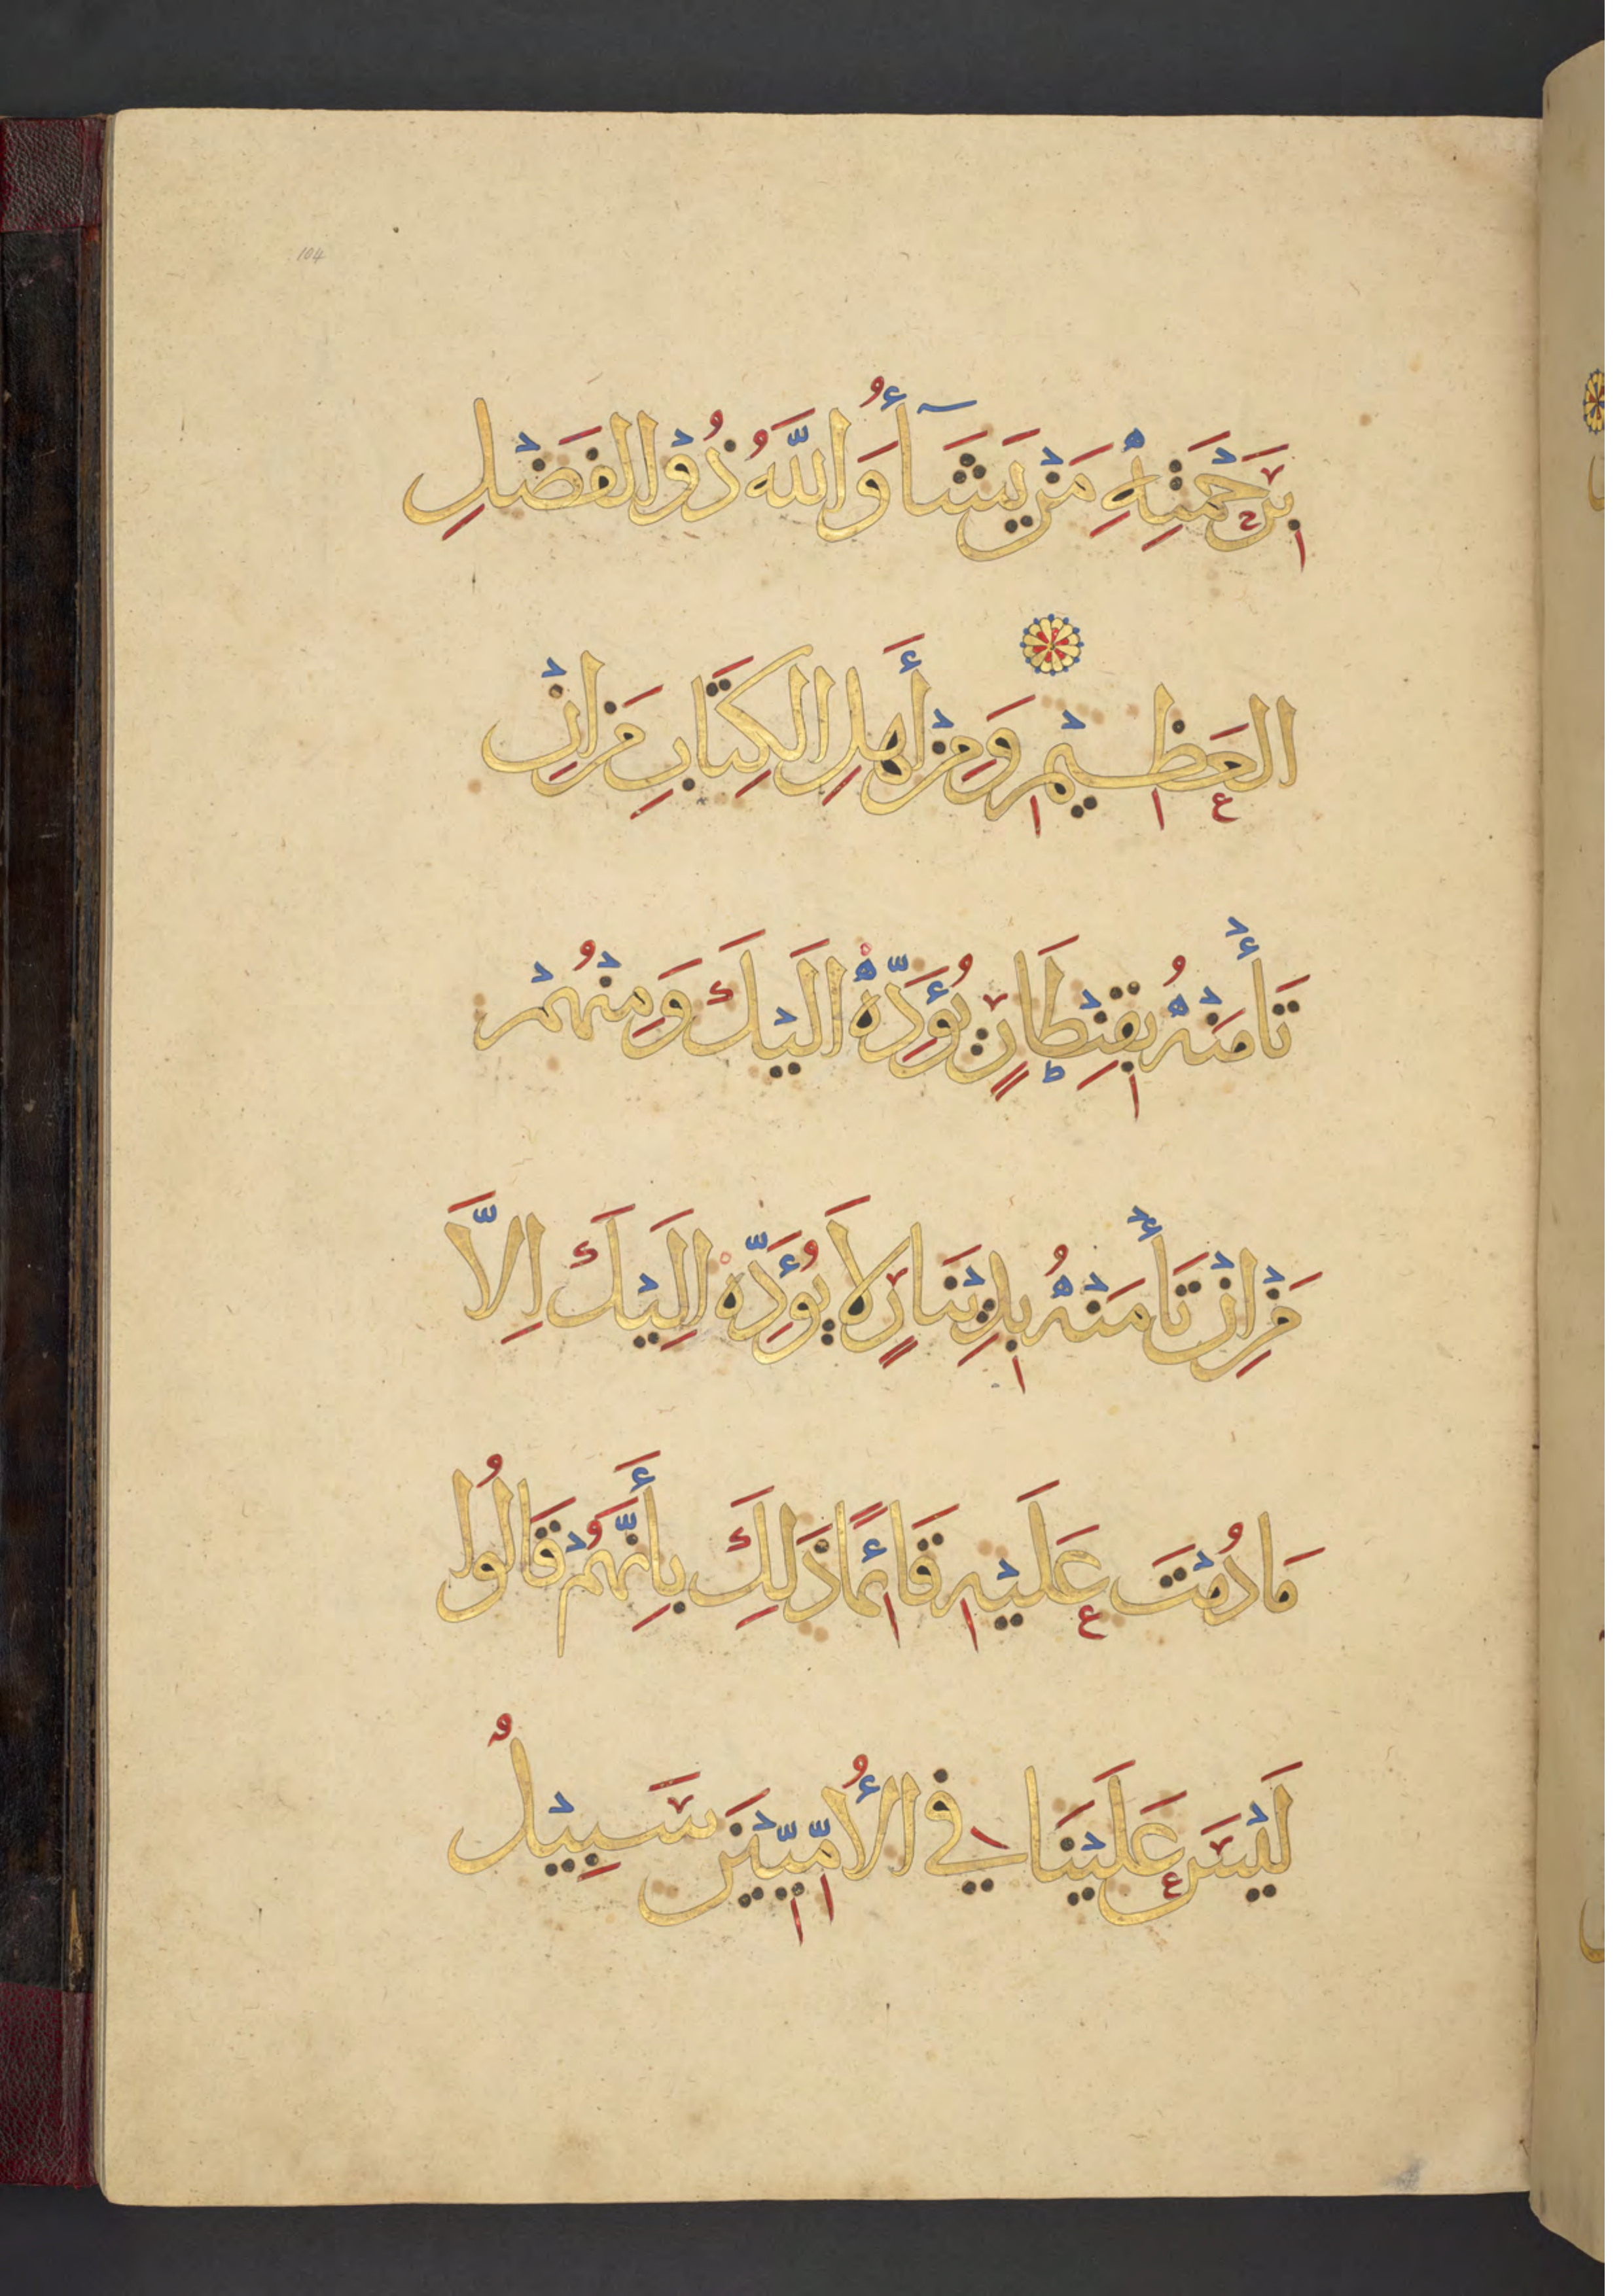 104
بِرَحْمَتِهِ مَنْ يَشَآءُ وَاللَّهُ ذُوْ الفَضْلِ
العَظِيْمِ وَمِنْ أَهْلِ الكِتَابِ مَنْ اِنْ
تَأْمَنْهُ بِقِنْطَارٍ يُؤَدِّهْ اِلَيْكَ وَمِنْهُمْ
مَنْ اِنْ تَأْمَنْهُ بِدِيْنَارٍ لاَ يُؤَدِّهْ اِلَيْكَ اِلاَّ
مَا دُمْتَ عَلَيْهِ قَائِمًا ذَلِكَ بِأَنَّهُمْ قَالُوا
لَيْسَ عَلَيْنَا فِي الأُمِّيِّيْنَ سَبِيْلٌ